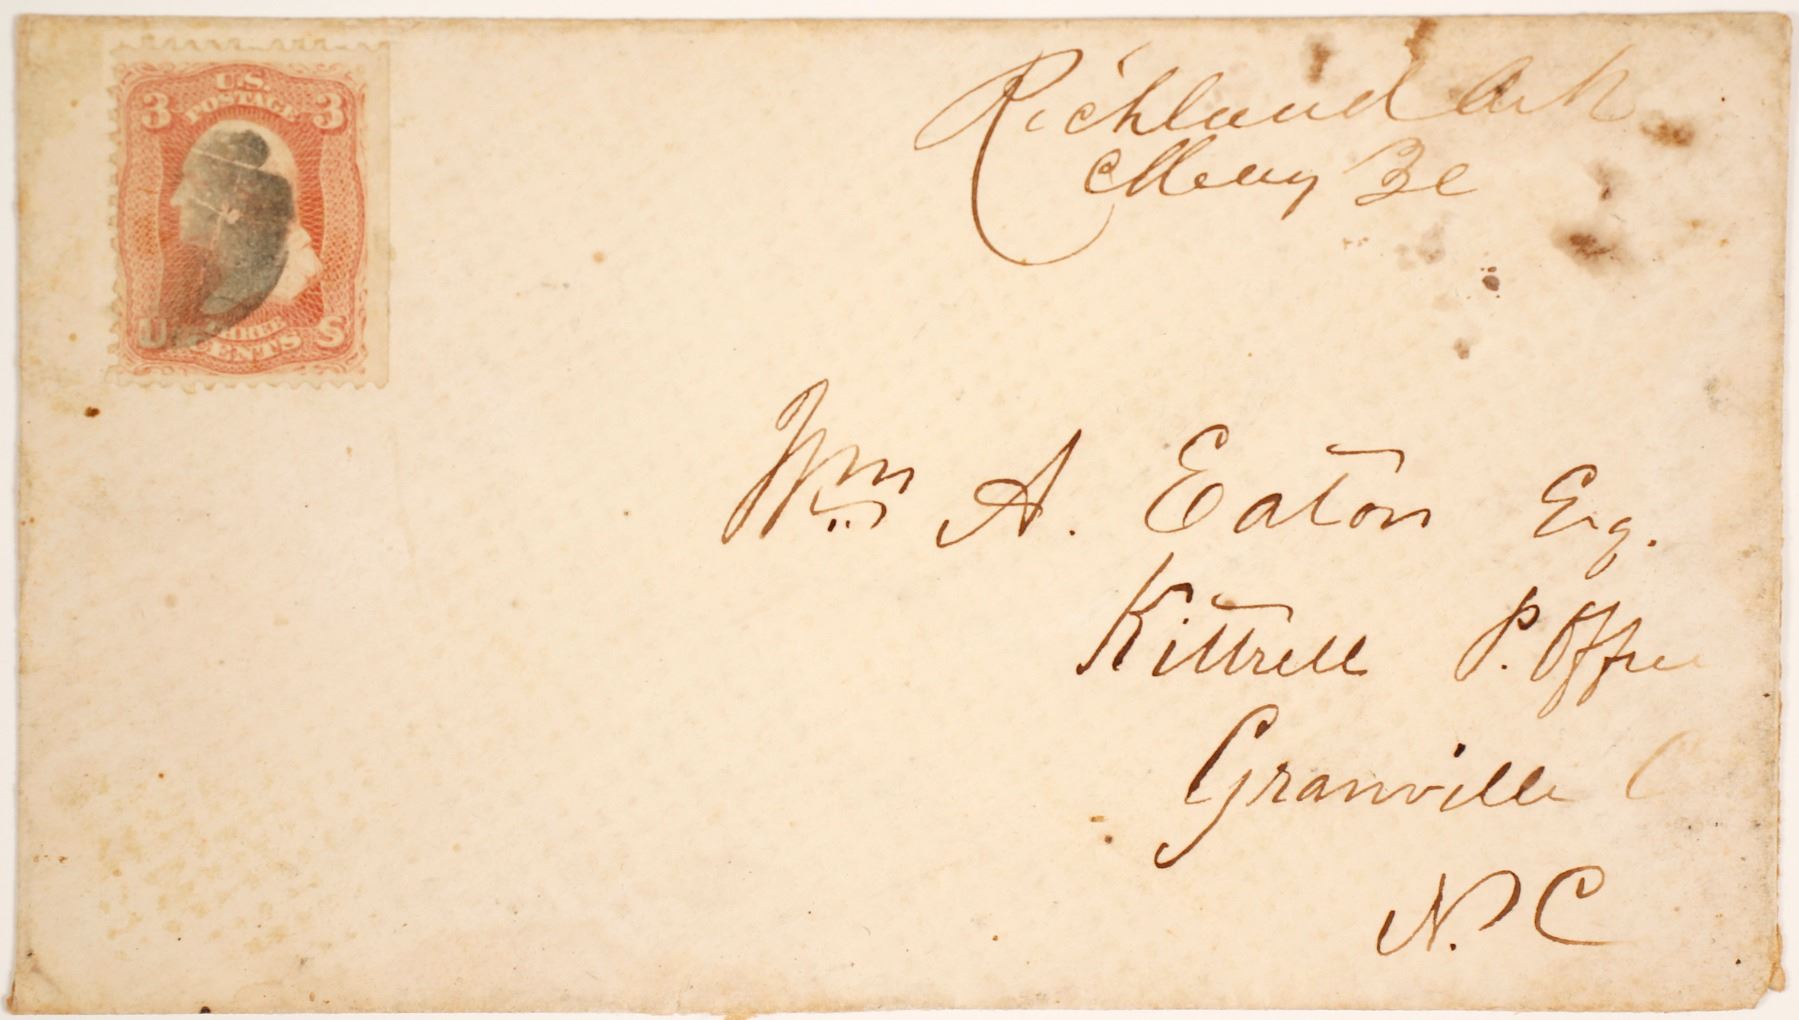 U.S.
POSTAGE
3 3
U S
THREE
CENTS
Richland Ark
May
Wm A. Eaton Esq.
Kittrell P. Office
Granville C
N. C